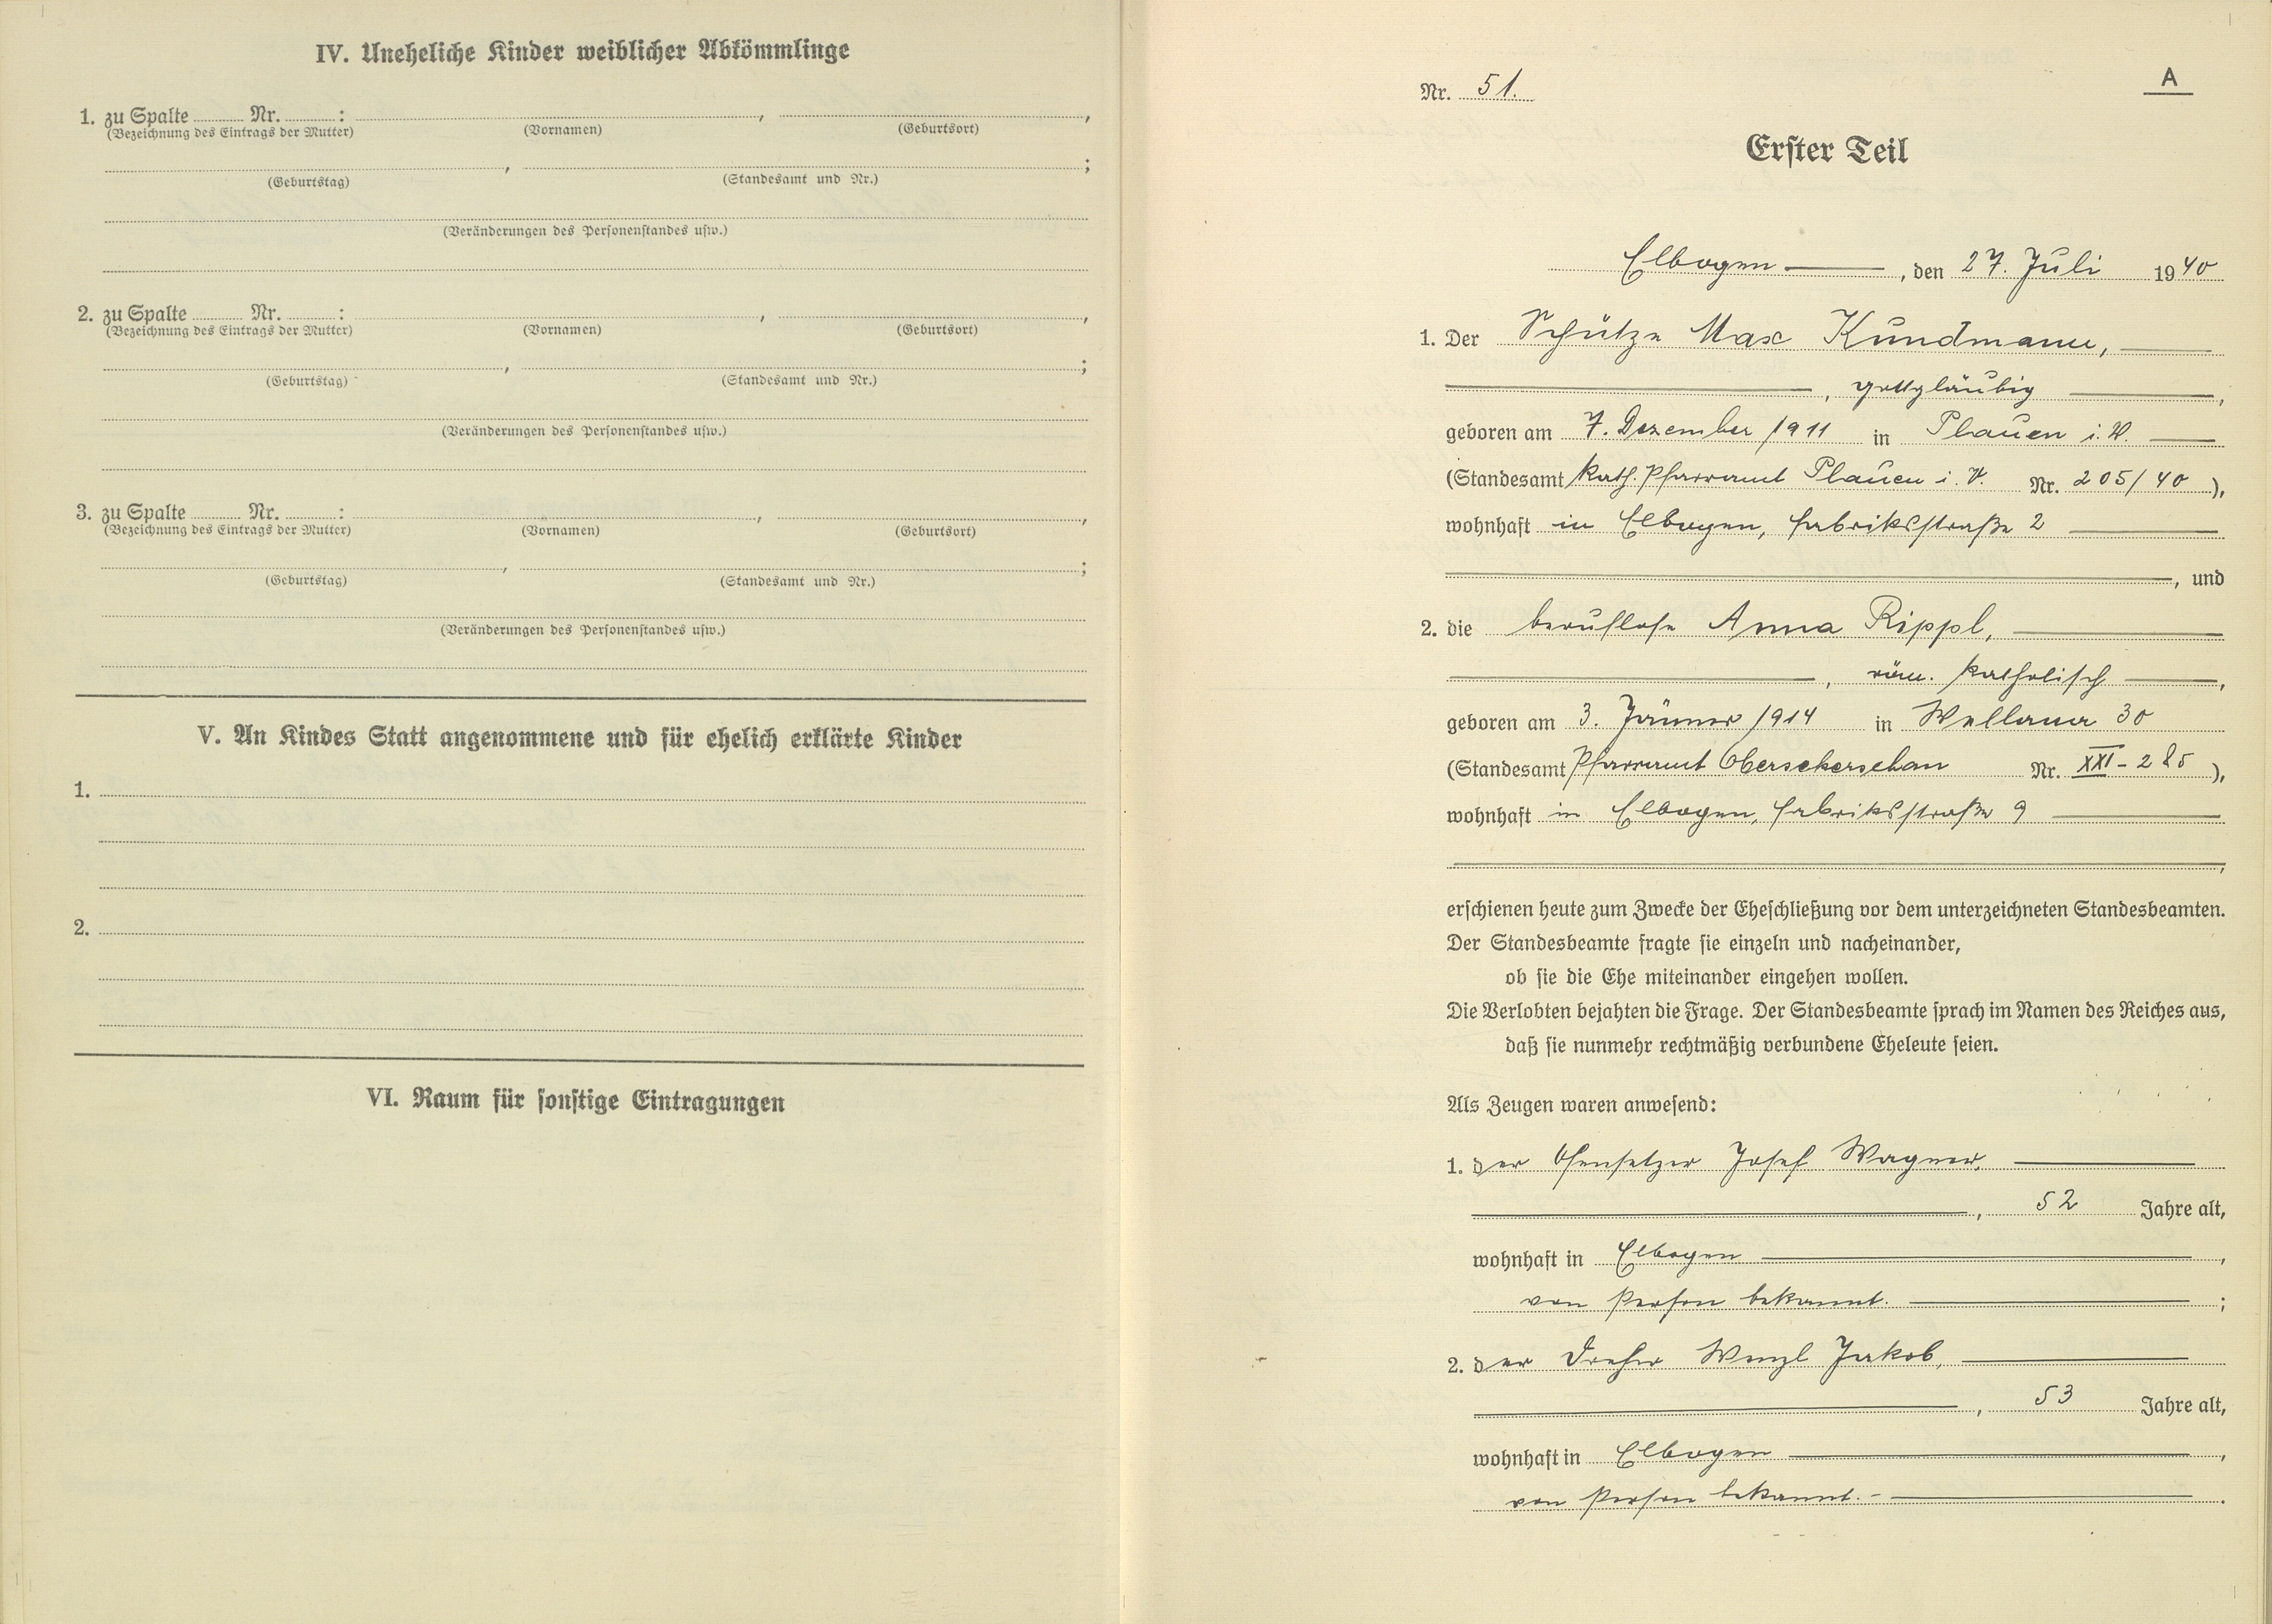 IV. Uneheliche Kinder weiblicher Abkömmlinge
1. zu Spalte ........ Nr. ........ : ........, ........,
(Bezeichnung des Eintrags der Mutter) (Vornamen) (Geburtsort)
........, ........;
(Geburtstag) (Standesamt und Nr.)
(Veränderungen des Personenstandes usw.)
2. zu Spalte ........ Nr. ........ : ........, ........,
(Bezeichnung des Eintrags der Mutter) (Vornamen) (Geburtsort)
........, ........;
(Geburtstag) (Standesamt und Nr.)
(Veränderungen des Personenstandes usw.)
3. zu Spalte ........ Nr. ........ : ........, ........,
(Bezeichnung des Eintrags der Mutter) (Vornamen) (Geburtsort)
........, ........;
(Geburtstag) (Standesamt und Nr.)
(Veränderungen des Personenstandes usw.)
V. An Kindes Statt angenommene und für ehelich erklärte Kinder
1.
2.
VI. Raum für sonstige Eintragungen
A
Nr. 51.
Erster Teil
Elbogen, den 27. Juli 1940
1. Der Schütze Max Kundmann,
, gottgläubig,
geboren am 7. Dezember 1911 in Plauen i. V.
(Standesamt kath. Pfarramt Plauen i. V. Nr. 205/40),
wohnhaft in Elbogen, Fabriksstraße 2
, und
2. die berufslose Anna Rippl,
, röm. katholisch,
geboren am 3. Jänner 1914 in 30
(Standesamt Pfarramt Obersekerschan Nr. XXI-285),
wohnhaft in Elbogen, Fabriksstraße 9
,
erschienen heute zum Zwecke der Eheschließung vor dem unterzeichneten Standesbeamten.
Der Standesbeamte fragte sie einzeln und nacheinander,
ob sie die Ehe miteinander eingehen wollen.
Die Verlobten bejahten die Frage. Der Standesbeamte sprach im Namen des Reiches aus,
daß sie nunmehr rechtmäßig verbundene Eheleute seien.
Als Zeugen waren anwesend:
1. der Ofensetzer Josef Wagner,
, 52 Jahre alt,
wohnhaft in Elbogen,
von Person bekannt. ;
2. der Dreher Wenzl Jakob,
, 53 Jahre alt,
wohnhaft in Elbogen,
von Person bekannt. - .